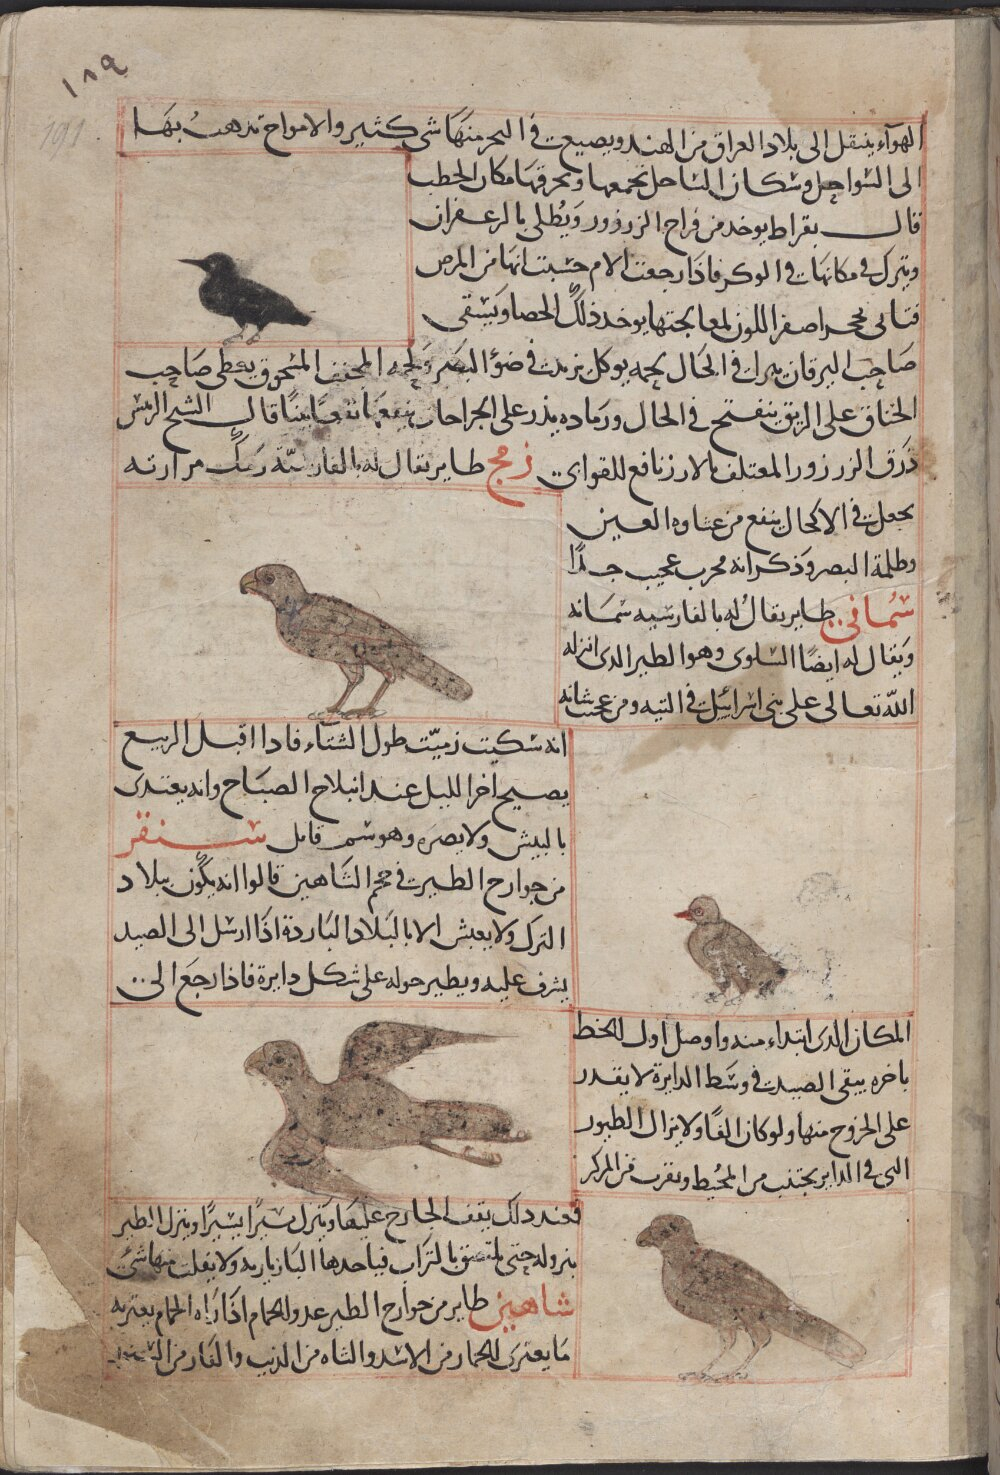 ١٨٩
191
الهوآء ينتقل الى بلاد العراق من الهند ويصيعت فى البحر منها شى كثير والامواج تدهب بها
الى السواحل وسكان الساحل تجمعها وتحرقها مكان الحطب
قال بقراط يوخد من فراخ الزرزور ويُطلى بالزعفران
ويترك فى مكانهات فى الوكر فاذا رجعت الام حسبت انها من المرض
فتاتى بحجر اصفر اللون لمعالجتها يوخد ذلك الحصا ويسقى
صاحب اليرقان يبرا فى الحال لحمه يوكل يزيد فى ضوء البصر ولحمه المجفف المسحوق يعطى صاحب
الخناق على الريق ينفتح فى الحال ورماده يذر على الجراحات ينفعها نفعا بينًا قال الشيخ الرئيس
ذرق الزرزور المعتلف بالارز نافع للقوابى .. زمج طاير يقال له بالفارسيّة مرارته
تجعل فى الاكحال ينفع من عشاوه العين
وظلمة البصر وذكر انه مجرب عجيب جدًا
سُمانى .. طاير يقالُ له بالفارسيه سمانه
ويقال له ايضًا السلوى وهو الطير الدى انزله
اللّه تعالى على بنى اسرائيل فى التيه ومن عجب شانه
انه سكيت زميّت طول الشتآء فادا اقبل الربيع
يصيح اخر الليل عند انبلاج الصباح وانه يعتدى
بالبيش ولا يضره وهو سم قاتل سنقر
من جوارح الطير فى حجم الشاهين قالوا انه يكون ببلاد
الترك ولا يعيش الا بالبلاد الباردة اذا ارسل الى الصيد
يشرف عليه ويطير حوله على شكل دايرة فاذا رجع الى ..
المكان الدى ابتداء منه واوصل اول الخط
باخره يبقى الصيد فى وسط الدايرة لا يقدر
على الخروج منها ولو كان الفًا ولا يزال الطيور
التى فى الداير يجتنب من المحيط ويقرب من المركز
فعند دلك يقف الجارح عليها وينزل يسيرًا يسيرًا وينزل الطير
بنزوله حتى يلتصق بالتراب فياخدها البازياريه ولا يفلت منها شئ
شاهين طاير من جوارح الطير عدو الحمام اذا راه الحمام يعتريه
ما يعترى الحمار من الاسد والشاه من الذيب والفار من السنور